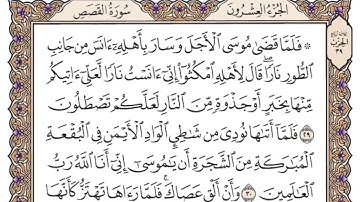 الجزء العشرون
سورة القصص
۞ فَلَمَّا قَضَىٰ مُوسَى ٱلْأَجَلَ وَسَارَ بِأَهْلِهِۦٓ ءَانَسَ مِن جَانِبِ
ٱلطُّورِ نَارًا قَالَ لِأَهْلِهِ ٱمْكُثُوٓا۟ إِنِّىٓ ءَانَسْتُ نَارًا لَّعَلِّىٓ ءَاتِيكُم
مِّنْهَا بِخَبَرٍ أَوْ جَذْوَةٍ مِّنَ ٱلنَّارِ لَعَلَّكُمْ تَصْطَلُونَ
٢٩ فَلَمَّآ أَتَىٰهَا نُودِىَ مِن شَٰطِئِ ٱلْوَادِ ٱلْأَيْمَنِ فِى ٱلْبُقْعَةِ
ٱلْمُبَٰرَكَةِ مِنَ ٱلشَّجَرَةِ أَن يَٰمُوسَىٰٓ إِنِّىٓ أَنَا ٱللَّهُ رَبُّ
ٱلْعَٰلَمِينَ ٣٠ وَأَنْ أَلْقِ عَصَاكَ فَلَمَّا رَءَاهَا تَهْتَزُّ كَأَنَّهَا
الحزب
٣٩